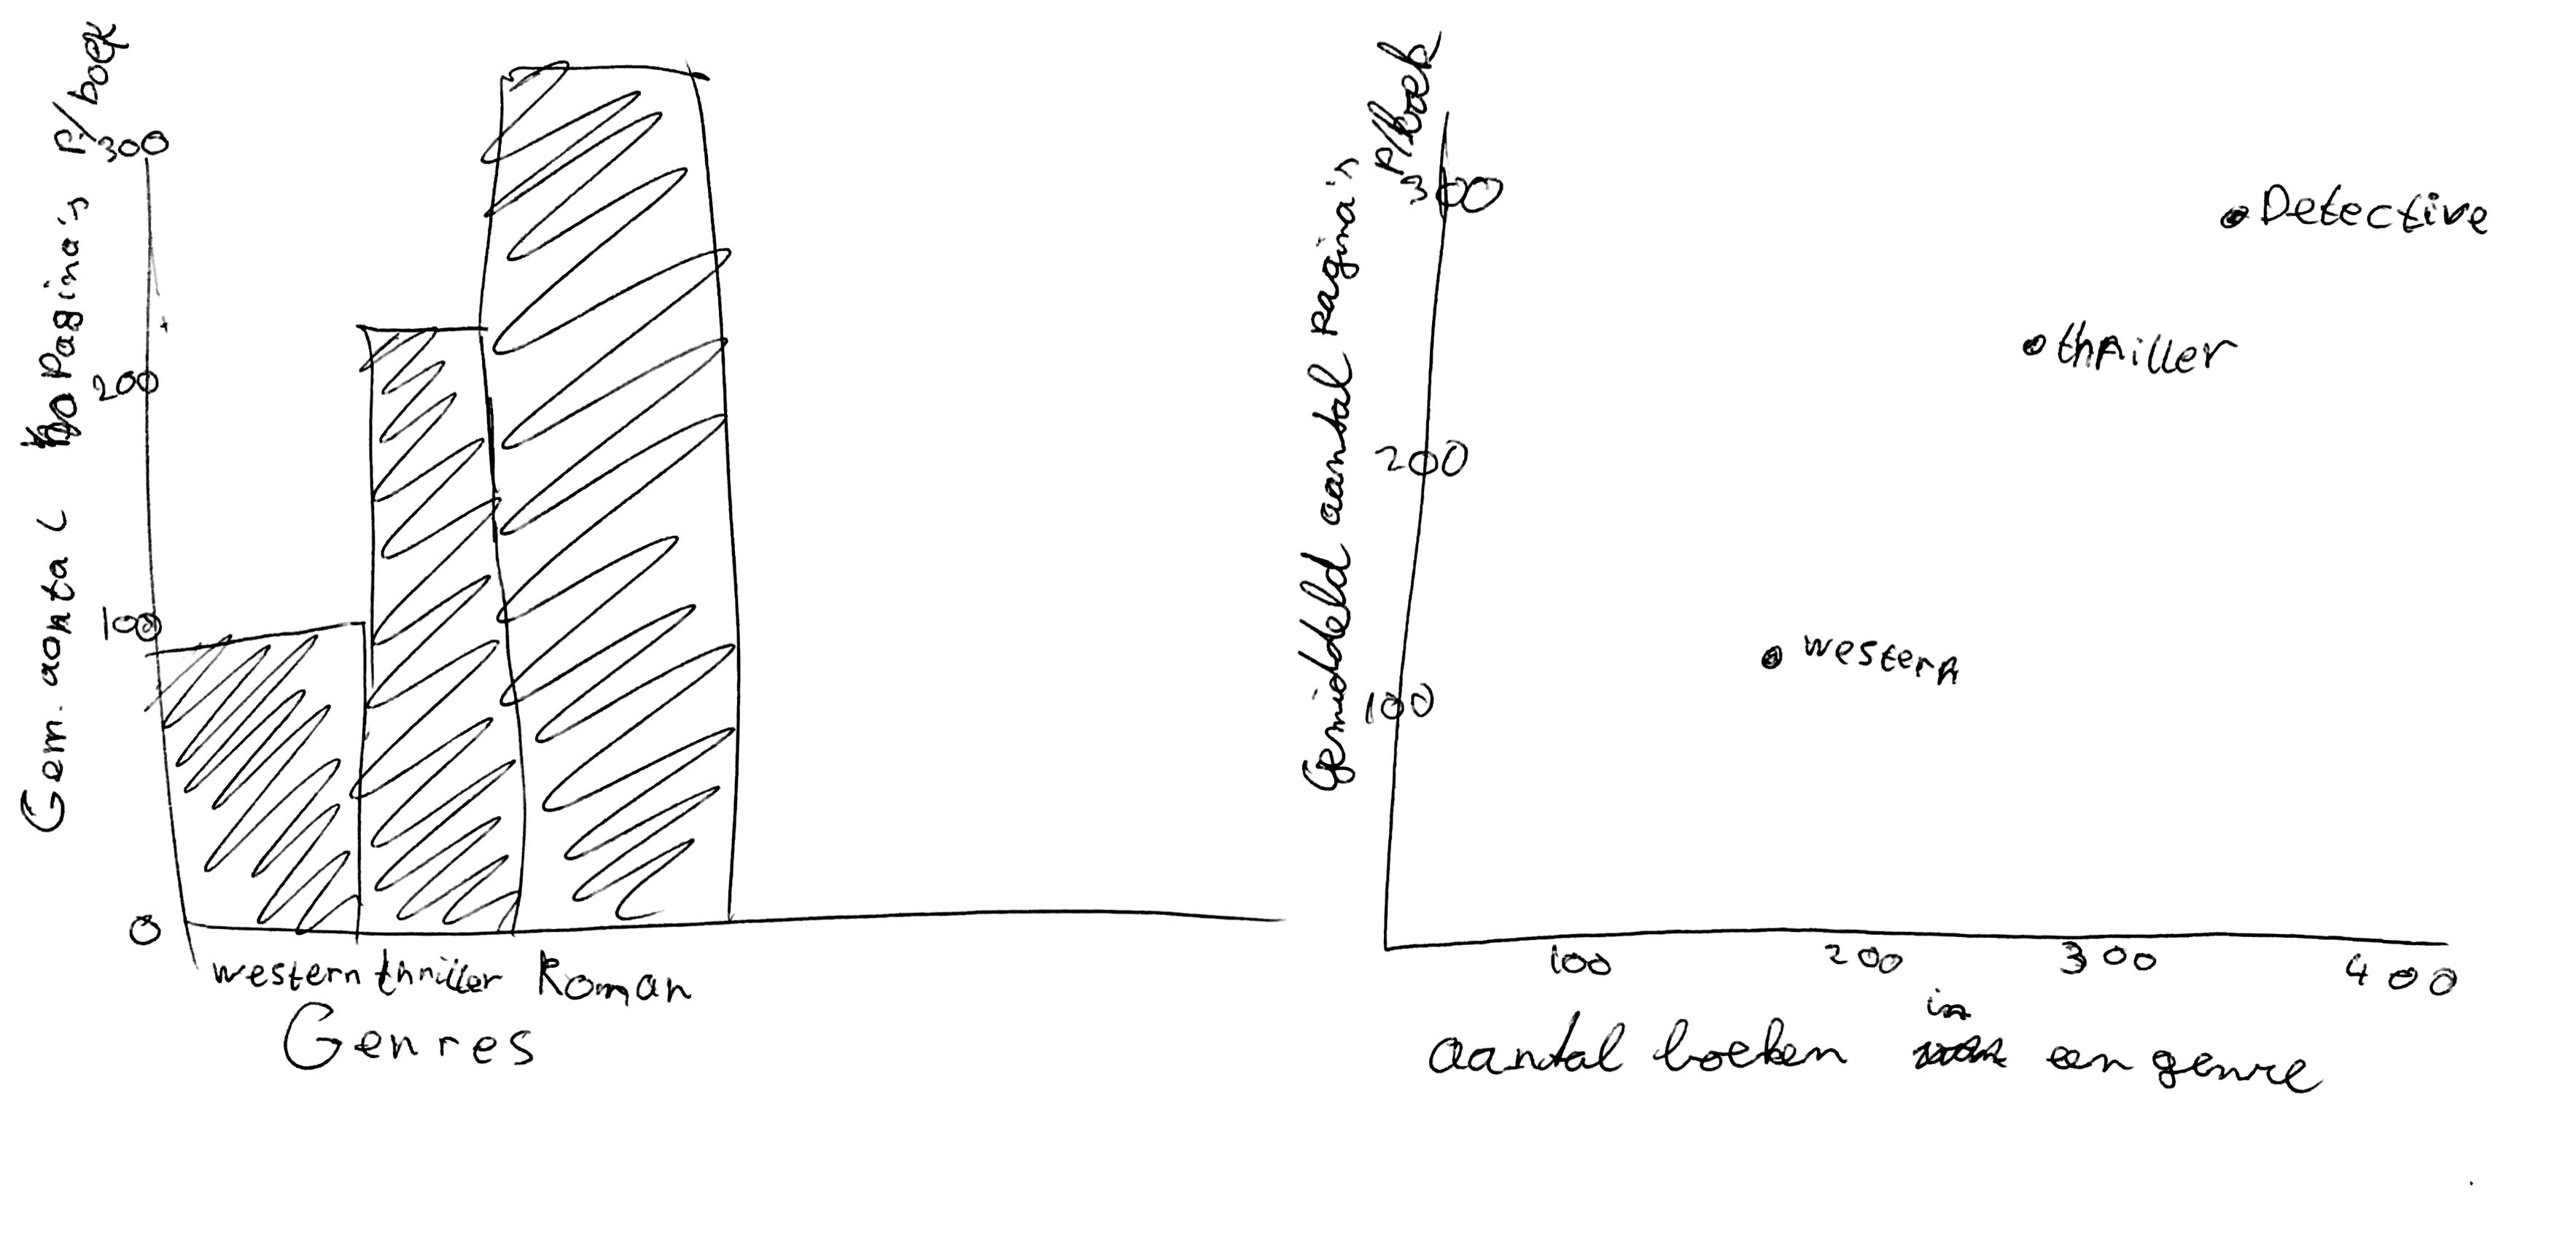 Gem. aantal Pagina's p/boek
300
200
100
0
western thriller Roman
Genres
Gemiddeld aantal pagina's p/boek
300
200
100
Detective
thriller
western
100 200 300 400
aantal boeken in een genre